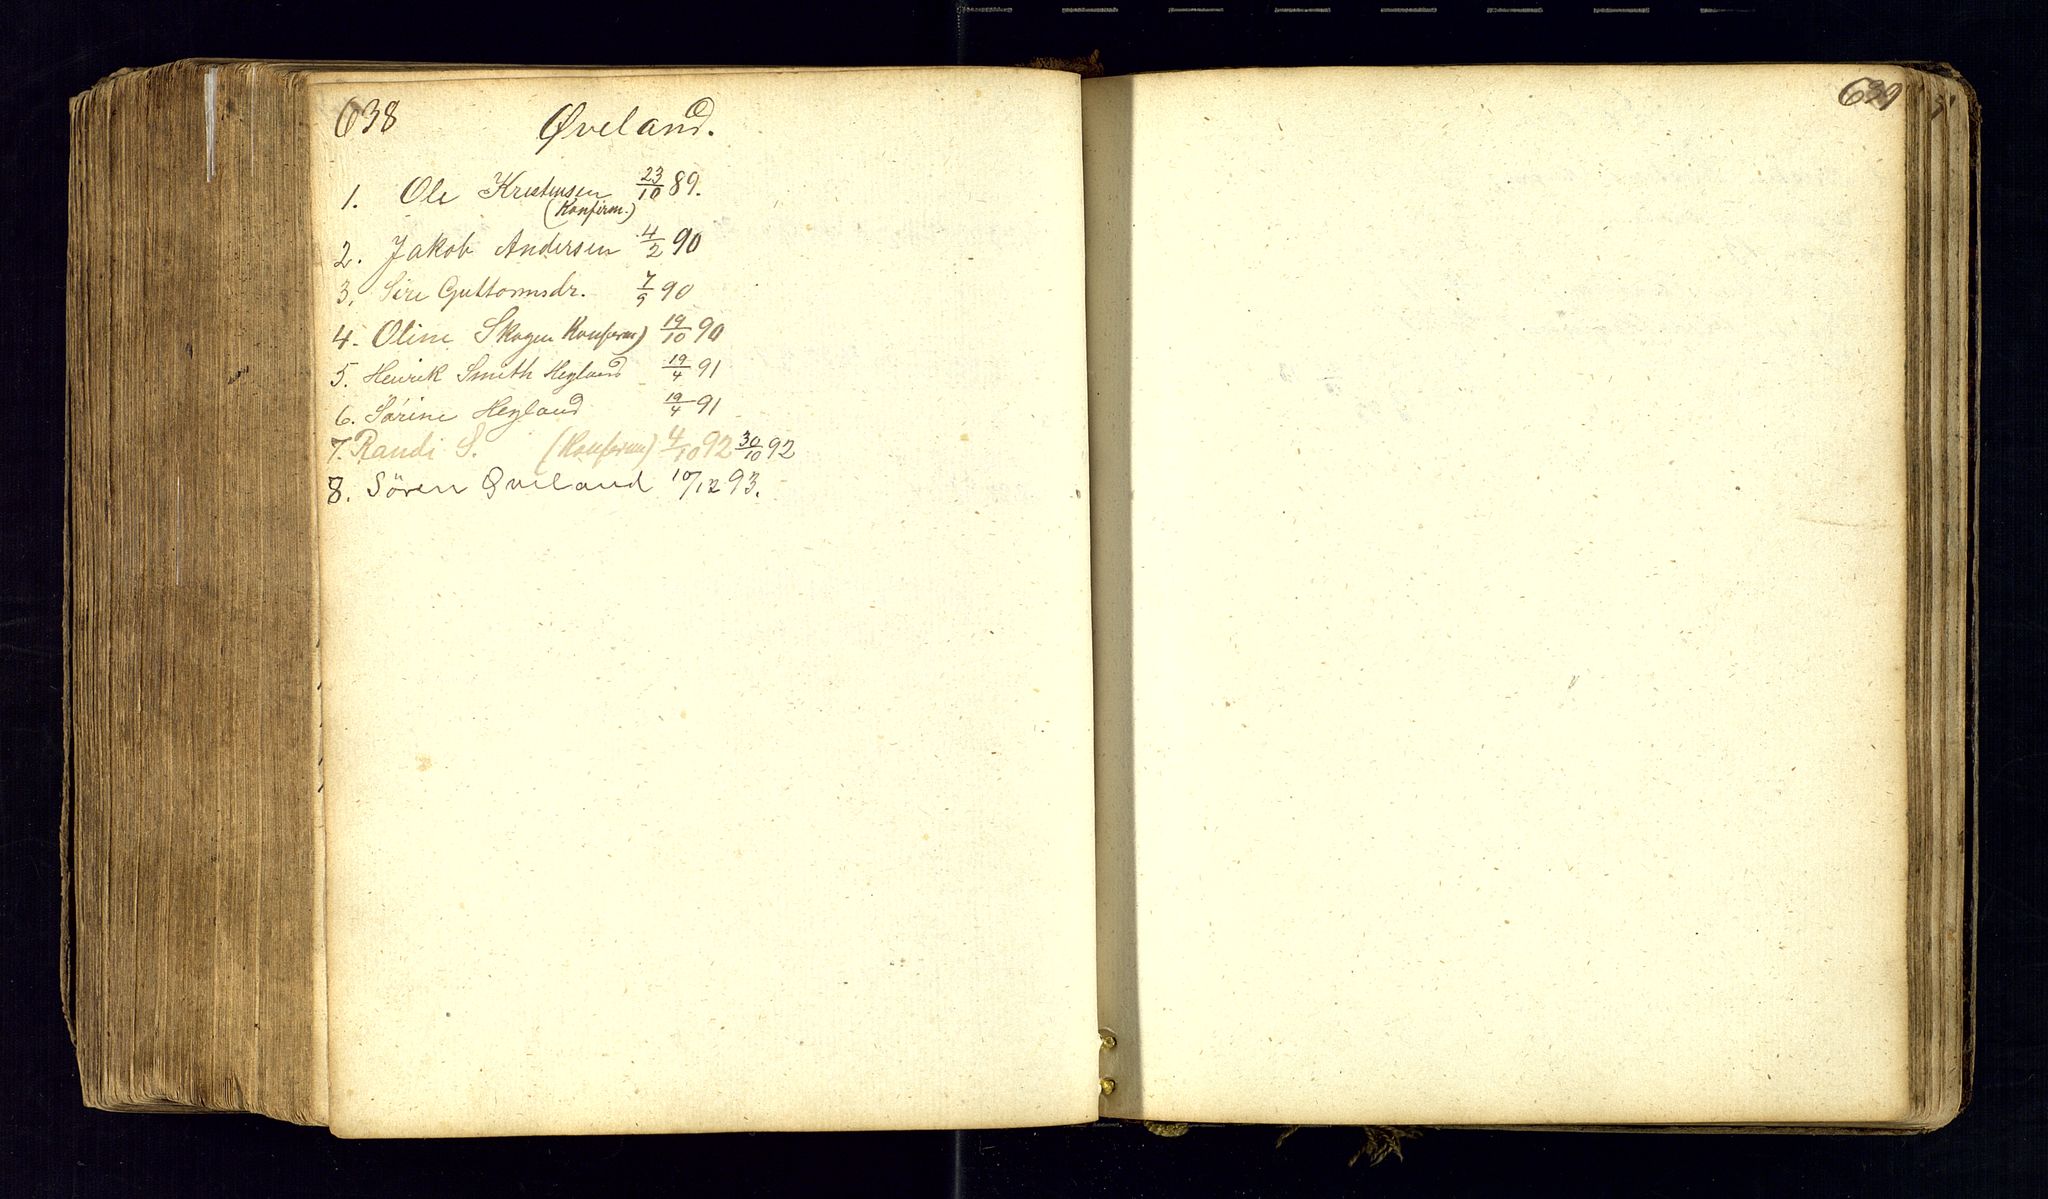 638
Øveland.
1. Ole Kristensen 23/10 89.
(Konfirm.)
2. Jakob Andersen 4/2 90
3. Sire Guttormsdr. 7/9 90
4. Oline Skogen Konferm) 19/10 90
5. Henrik Smith Hegland 19/4 91
6. Sørine Hegland 19/4 91
7. Randi S. (Konferm) 4/10 92 30/10 92
8. Sören Øveland 10/12 93.
639